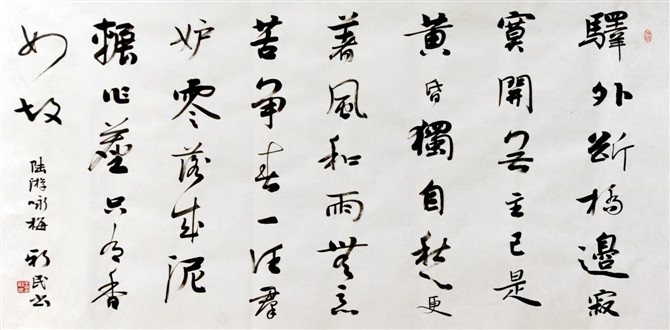 驛外斷橋邊寂
寞開無主已是
黃昏獨自愁更
著風和雨無意
苦争春一任羣
妒零落成泥
輾作塵只有香
如故
陸游咏梅 新民书